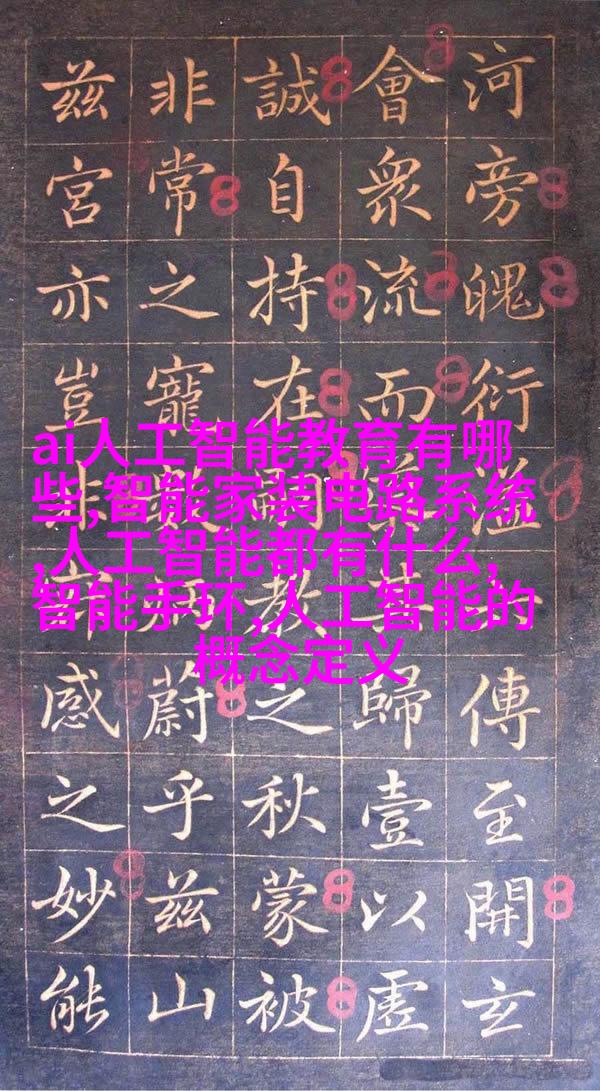 河旁魄衍溢傳至開玄
會眾流而歸壹以虛
誠自持在教之秋蒙被
非常之寵蔚乎兹山
兹宮亦豈非感之妙能
ai人工智能教育有哪
些,智能家装电路系统
,人工智能都有什么,
智能手环,人工智能的
概念定义